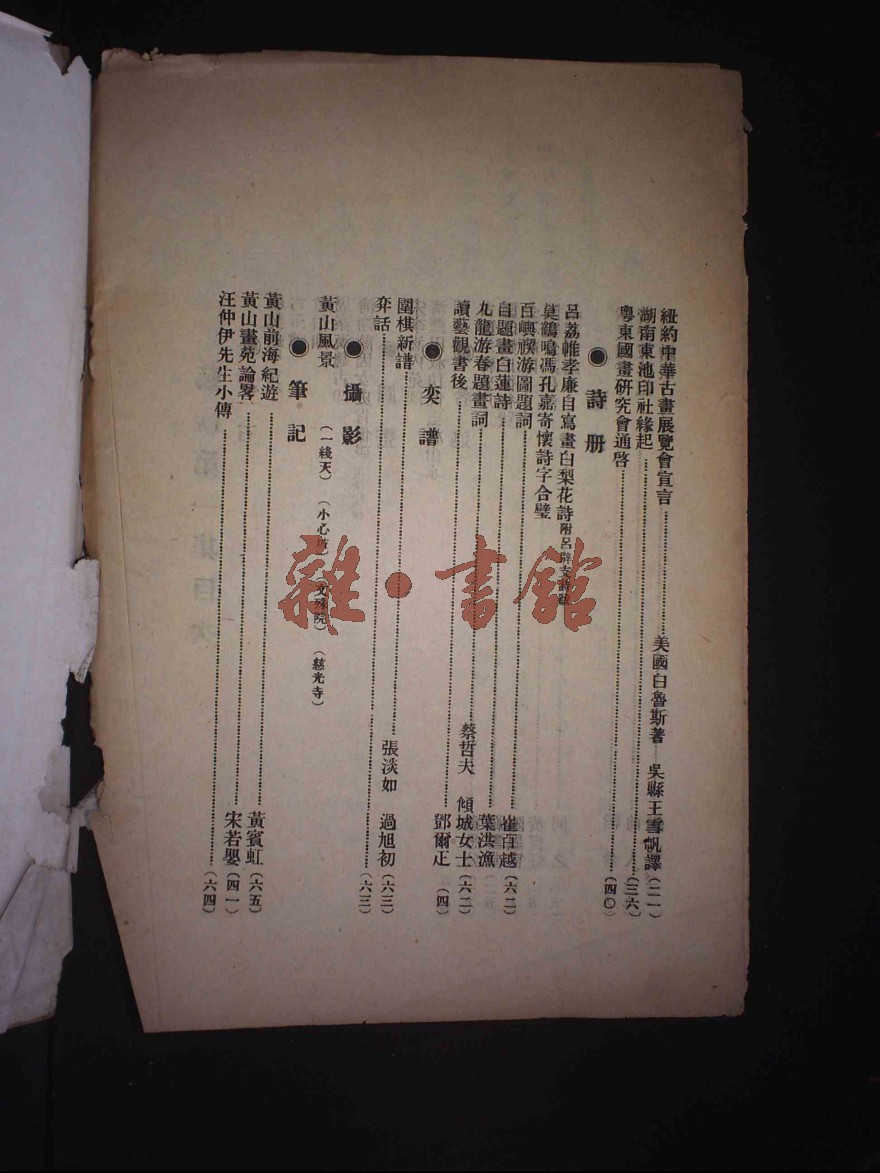 紐約中華古畫展覽會宣言 美國白魯斯著 吳縣王雪帆譯(二一)
湖南東池印社緣起 (三六)
粵東國畫研究會通啓 (四〇)
◉詩册
呂荔帷孝廉自寫畫白梨花詩 附呂
馮孔嘉寄懷詩字合璧
百嶼禊游圖題詞
自題畫白蓮詩 崔百越(六二)
九龍游春題畫詞 葉洪漁
讀藝觀書後 蔡哲夫 傾城女士(六二)
鄧爾疋(四)
◉奕譜
圍棋新譜 張淡如 過旭初(六三)
弈話 (六三)
◉攝影
黃山風景 (一綫天) (小心坡) (文殊院) (慈光寺)
◉筆記
黃山前海紀遊 黃賓虹(六五)
黃山畫苑論畧 宋若嬰(四一)
汪仲伊先生小傳 (六四)
雜·書館